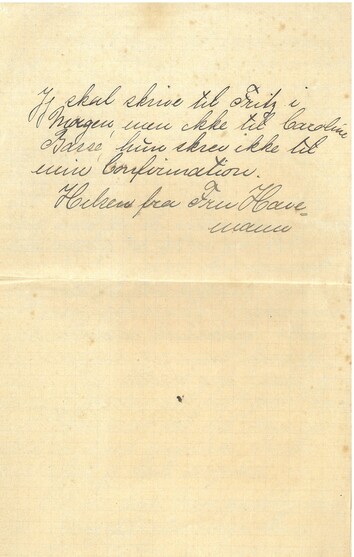 Jg skal skrive til Fritz i
Morgen, men ikke til Caroline
Basse hun skrev ikke til
min Confirmation.
Hilsen fra Fru Have-
mann